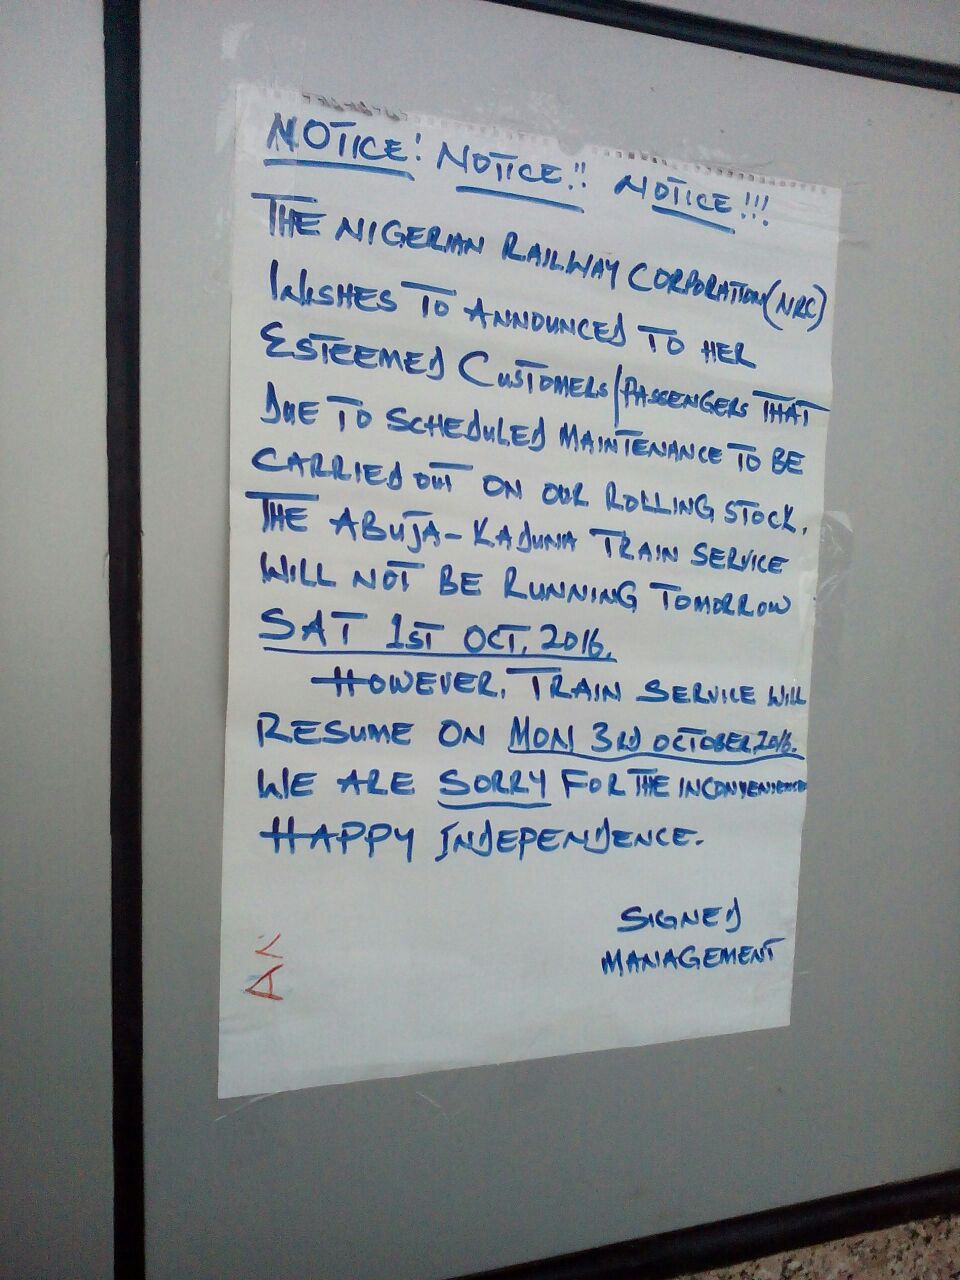 NOTICE! NOTICE!! NOTICE!!!
THE NIGERIAN RAILWAY CORPORATION (NRC)
WISHES TO ANNOUNCED TO HER
ESTEEMED CUSTOMERS/PASSENGERS THAT
DUE TO SCHEDULED MAINTENANCE TO BE
CARRIED OUT ON OUR ROLLING STOCK.
THE ABUJA-KADUNA TRAIN SERVICE
WILL NOT BE RUNNING TOMORROW
SAT 1ST OCT. 2016.
HOWEVER, TRAIN SERVICE WILL
RESUME ON MON 3RD OCTOBER, 2016.
WE ARE SORRY FOR THE INCONVENIENCES
HAPPY INDEPENDENCE.
SIGNED
MANAGEMENT